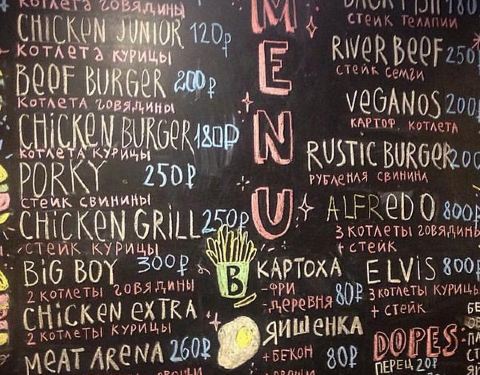 КОТЛЕТА ГОВЯДИНЫ
CHICKEN JUNIOR 120₽
КОТЛЕТА КУРИЦЫ
BEEF BURGER 200₽
КОТЛЕТА ГОВЯДИНЫ
CHICKEN BURGER 180₽
КОТЛЕТА КУРИЦЫ
PORKY 250₽
СТЕЙК СВИНИНЫ
CHICKEN GRILL 250₽
СТЕЙК КУРИЦЫ
BIG BOY 300₽
2 КОТЛЕТЫ ГОВЯДИНЫ
CHICKEN EXTRA
2 КОТЛЕТЫ КУРИЦЫ
MEAT ARENA 260₽
MENU
B
КАРТОХА
-ФРИ
-ДЕРЕВНЯ 80₽
ЯИШЕНКА
+БЕКОН 80₽
180
СТЕЙК ТЕЛАПИИ
RIVER BEEF 250
СТЕЙК СЕМГИ
VEGANOS 200
КАРТОФ. КОТЛЕТА
RUSTIC BURGER 200
РУБЛЕНАЯ СВИНИНА
ALFREDO 800₽
3 КОТЛЕТЫ ГОВЯДИНЫ
+ СТЕЙК
ELVIS 800₽
3 КОТЛЕТЫ КУРИЦЫ
+ СТЕЙК
DOPES
ПЕРЕЦ 20₽